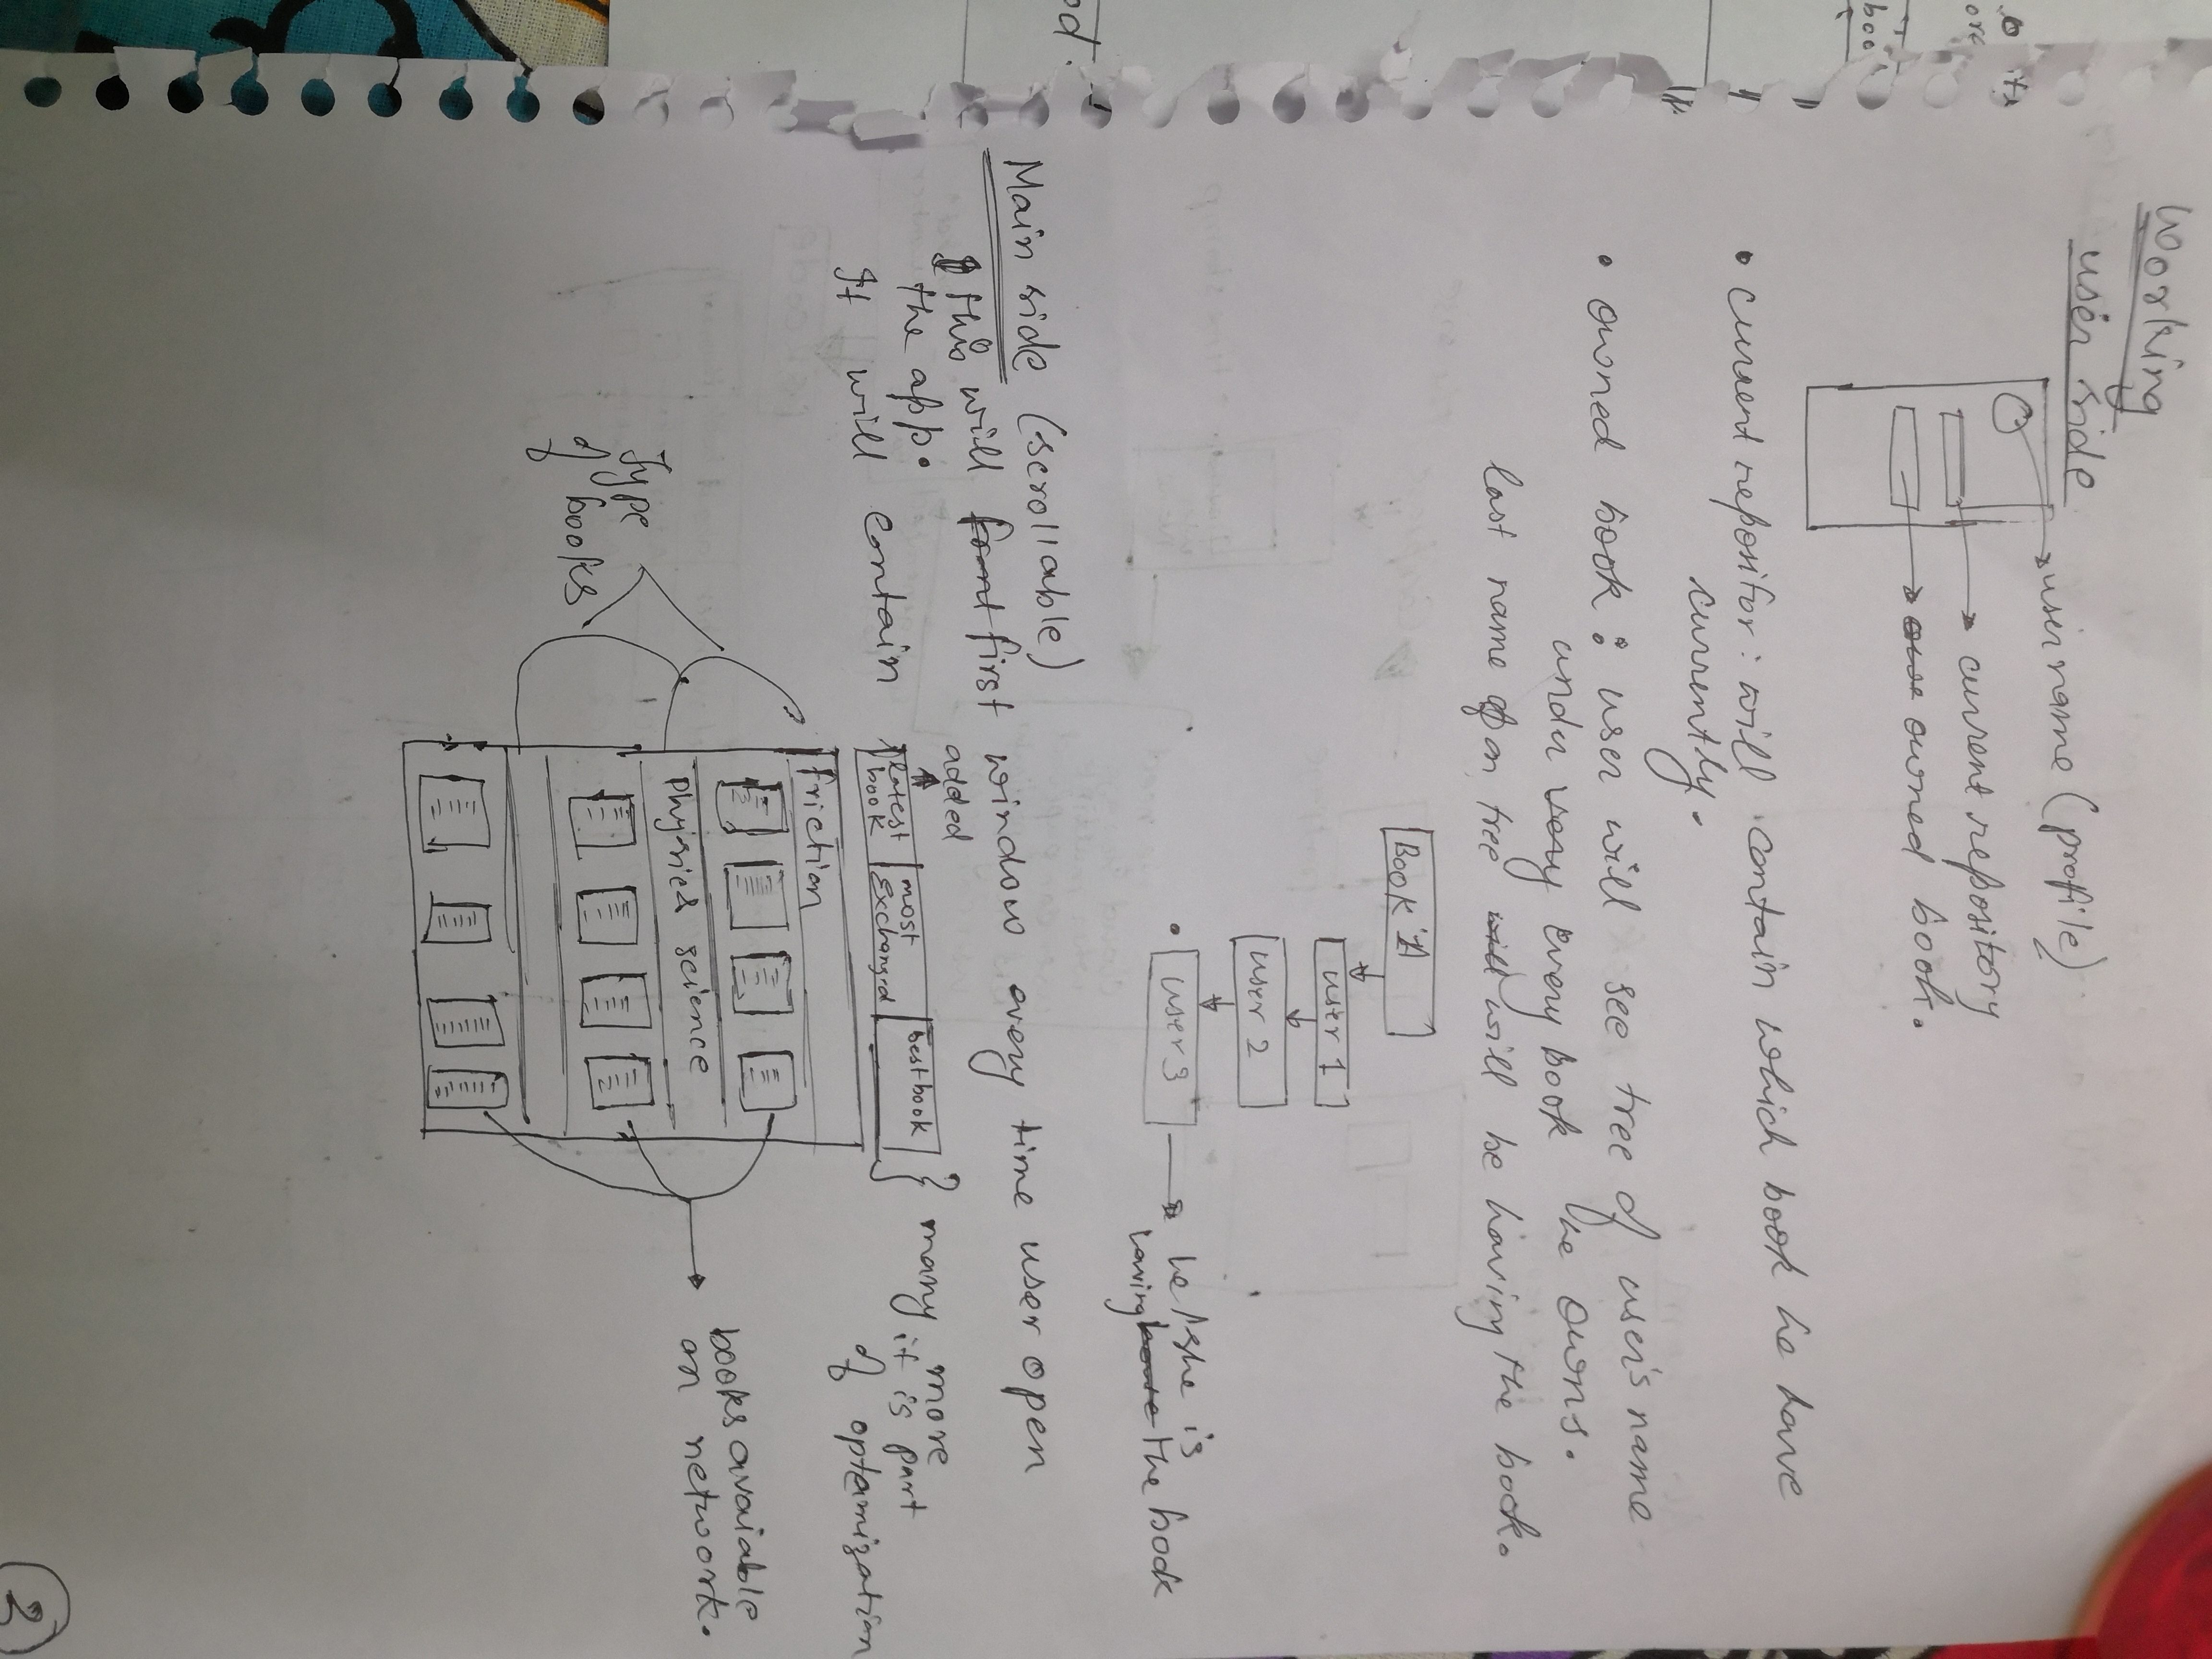 Working
user side
username (profile)
current repository
owe owned book.
• current repositor: will contain which book he have
currently.
• owned book : user will see tree of user's name
under very every book he owns.
last name of on tree will will be having the book.
Book 1A
user 1
user 2
• user 3
he/she is
having have the book
Main side (scrollable)
this will front first window every time user open
the app.
added
It will contain
latest
book
most
Exchanged
best book
many more
it is part
of optemization
friction
Physical science
Type
of books
books avaiable
on network.
2
boo
od.